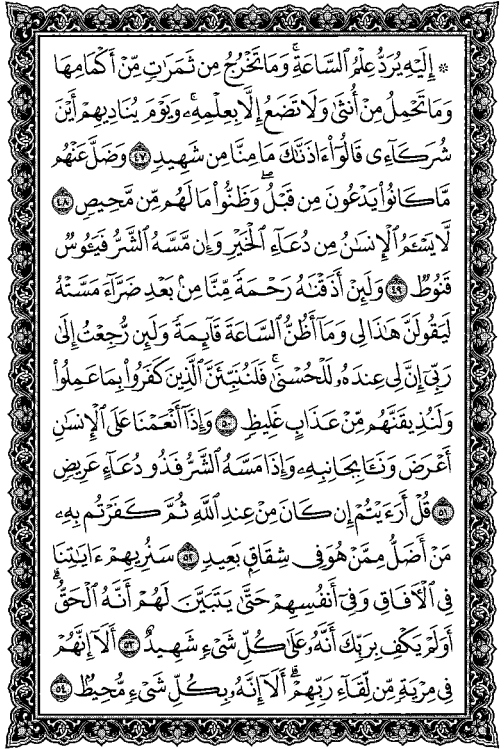 ۞ إِلَيْهِ يُرَدُّ عِلْمُ ٱلسَّاعَةِۚ وَمَا تَخْرُجُ مِن ثَمَرَٰتٍ مِّنْ أَكْمَامِهَا
وَمَا تَحْمِلُ مِنْ أُنثَىٰ وَلَا تَضَعُ إِلَّا بِعِلْمِهِۦۚ وَيَوْمَ يُنَادِيهِمْ أَيْنَ
شُرَكَآءِى قَالُوٓا۟ ءَاذَنَّٰكَ مَا مِنَّا مِن شَهِيدٍ ٤٧ وَضَلَّ عَنْهُم
مَّا كَانُوا۟ يَدْعُونَ مِن قَبْلُۖ وَظَنُّوا۟ مَا لَهُم مِّن مَّحِيصٍ ٤٨
لَّا يَسْـَٔمُ ٱلْإِنسَٰنُ مِن دُعَآءِ ٱلْخَيْرِ وَإِن مَّسَّهُ ٱلشَّرُّ فَيَـُٔوسٌ
قَنُوطٌ ٤٩ وَلَئِنْ أَذَقْنَٰهُ رَحْمَةً مِّنَّا مِنۢ بَعْدِ ضَرَّآءَ مَسَّتْهُ
لَيَقُولَنَّ هَٰذَا لِى وَمَآ أَظُنُّ ٱلسَّاعَةَ قَآئِمَةً وَلَئِن رُّجِعْتُ إِلَىٰ
رَبِّىٓ إِنَّ لِى عِندَهُۥ لَلْحُسْنَىٰۚ فَلَنُنَبِّئَنَّ ٱلَّذِينَ كَفَرُوا۟ بِمَا عَمِلُوا۟
وَلَنُذِيقَنَّهُم مِّنْ عَذَابٍ غَلِيظٍ ٥٠ وَإِذَآ أَنْعَمْنَا عَلَى ٱلْإِنسَٰنِ
أَعْرَضَ وَنَـَٔا بِجَانِبِهِۦ وَإِذَا مَسَّهُ ٱلشَّرُّ فَذُو دُعَآءٍ عَرِيضٍ
٥١ قُلْ أَرَءَيْتُمْ إِن كَانَ مِنْ عِندِ ٱللَّهِ ثُمَّ كَفَرْتُم بِهِۦ
مَنْ أَضَلُّ مِمَّنْ هُوَ فِى شِقَاقٍۭ بَعِيدٍ ٥٢ سَنُرِيهِمْ ءَايَٰتِنَا
فِى ٱلْـَٔافَاقِ وَفِىٓ أَنفُسِهِمْ حَتَّىٰ يَتَبَيَّنَ لَهُمْ أَنَّهُ ٱلْحَقُّۗ
أَوَلَمْ يَكْفِ بِرَبِّكَ أَنَّهُۥ عَلَىٰ كُلِّ شَىْءٍ شَهِيدٌ ٥٣ أَلَآ إِنَّهُمْ
فِى مِرْيَةٍ مِّن لِّقَآءِ رَبِّهِمْۗ أَلَآ إِنَّهُۥ بِكُلِّ شَىْءٍ مُّحِيطٌۢ ٥٤